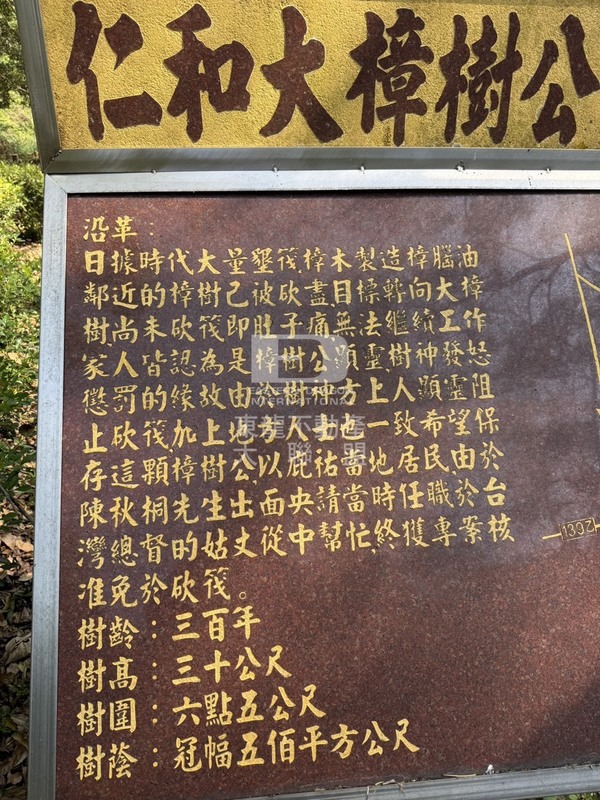 仁和大樟樹公
沿革:
日據時代大量墾筏樟木製造樟腦油
鄰近的樟樹已被砍盡目標轉向大樟
樹尚未砍筏即肚子痛無法繼續工作
家人皆認為是樟樹公顯靈樹神發怒
懲罰的緣故由於樹神方上人顯靈阻
止砍筏加上地方人士也一致希望保
存這顆樟樹公以庇祐當地居民由於
陳秋桐先生出面央請當時任職於台
灣總督的姑丈從中幫忙終獲專案核
准免於砍筏。
樹齡:三百年
樹高:三十公尺
樹圍:六點五公尺
樹蔭:冠幅五佰平方公尺
1392
INTERNATIONAL
東龍不動產
大聯盟